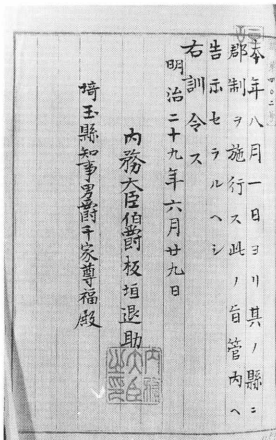 本年八月一日ヨリ其ノ縣ニ
郡制ヲ施行ス此ノ旨管内ヘ
告示セラルヘシ
右訓令ス
明治二十九年六月廿九日
内務大臣伯爵板垣退助
内務大臣之印
埼玉縣知事男爵千家尊福殿